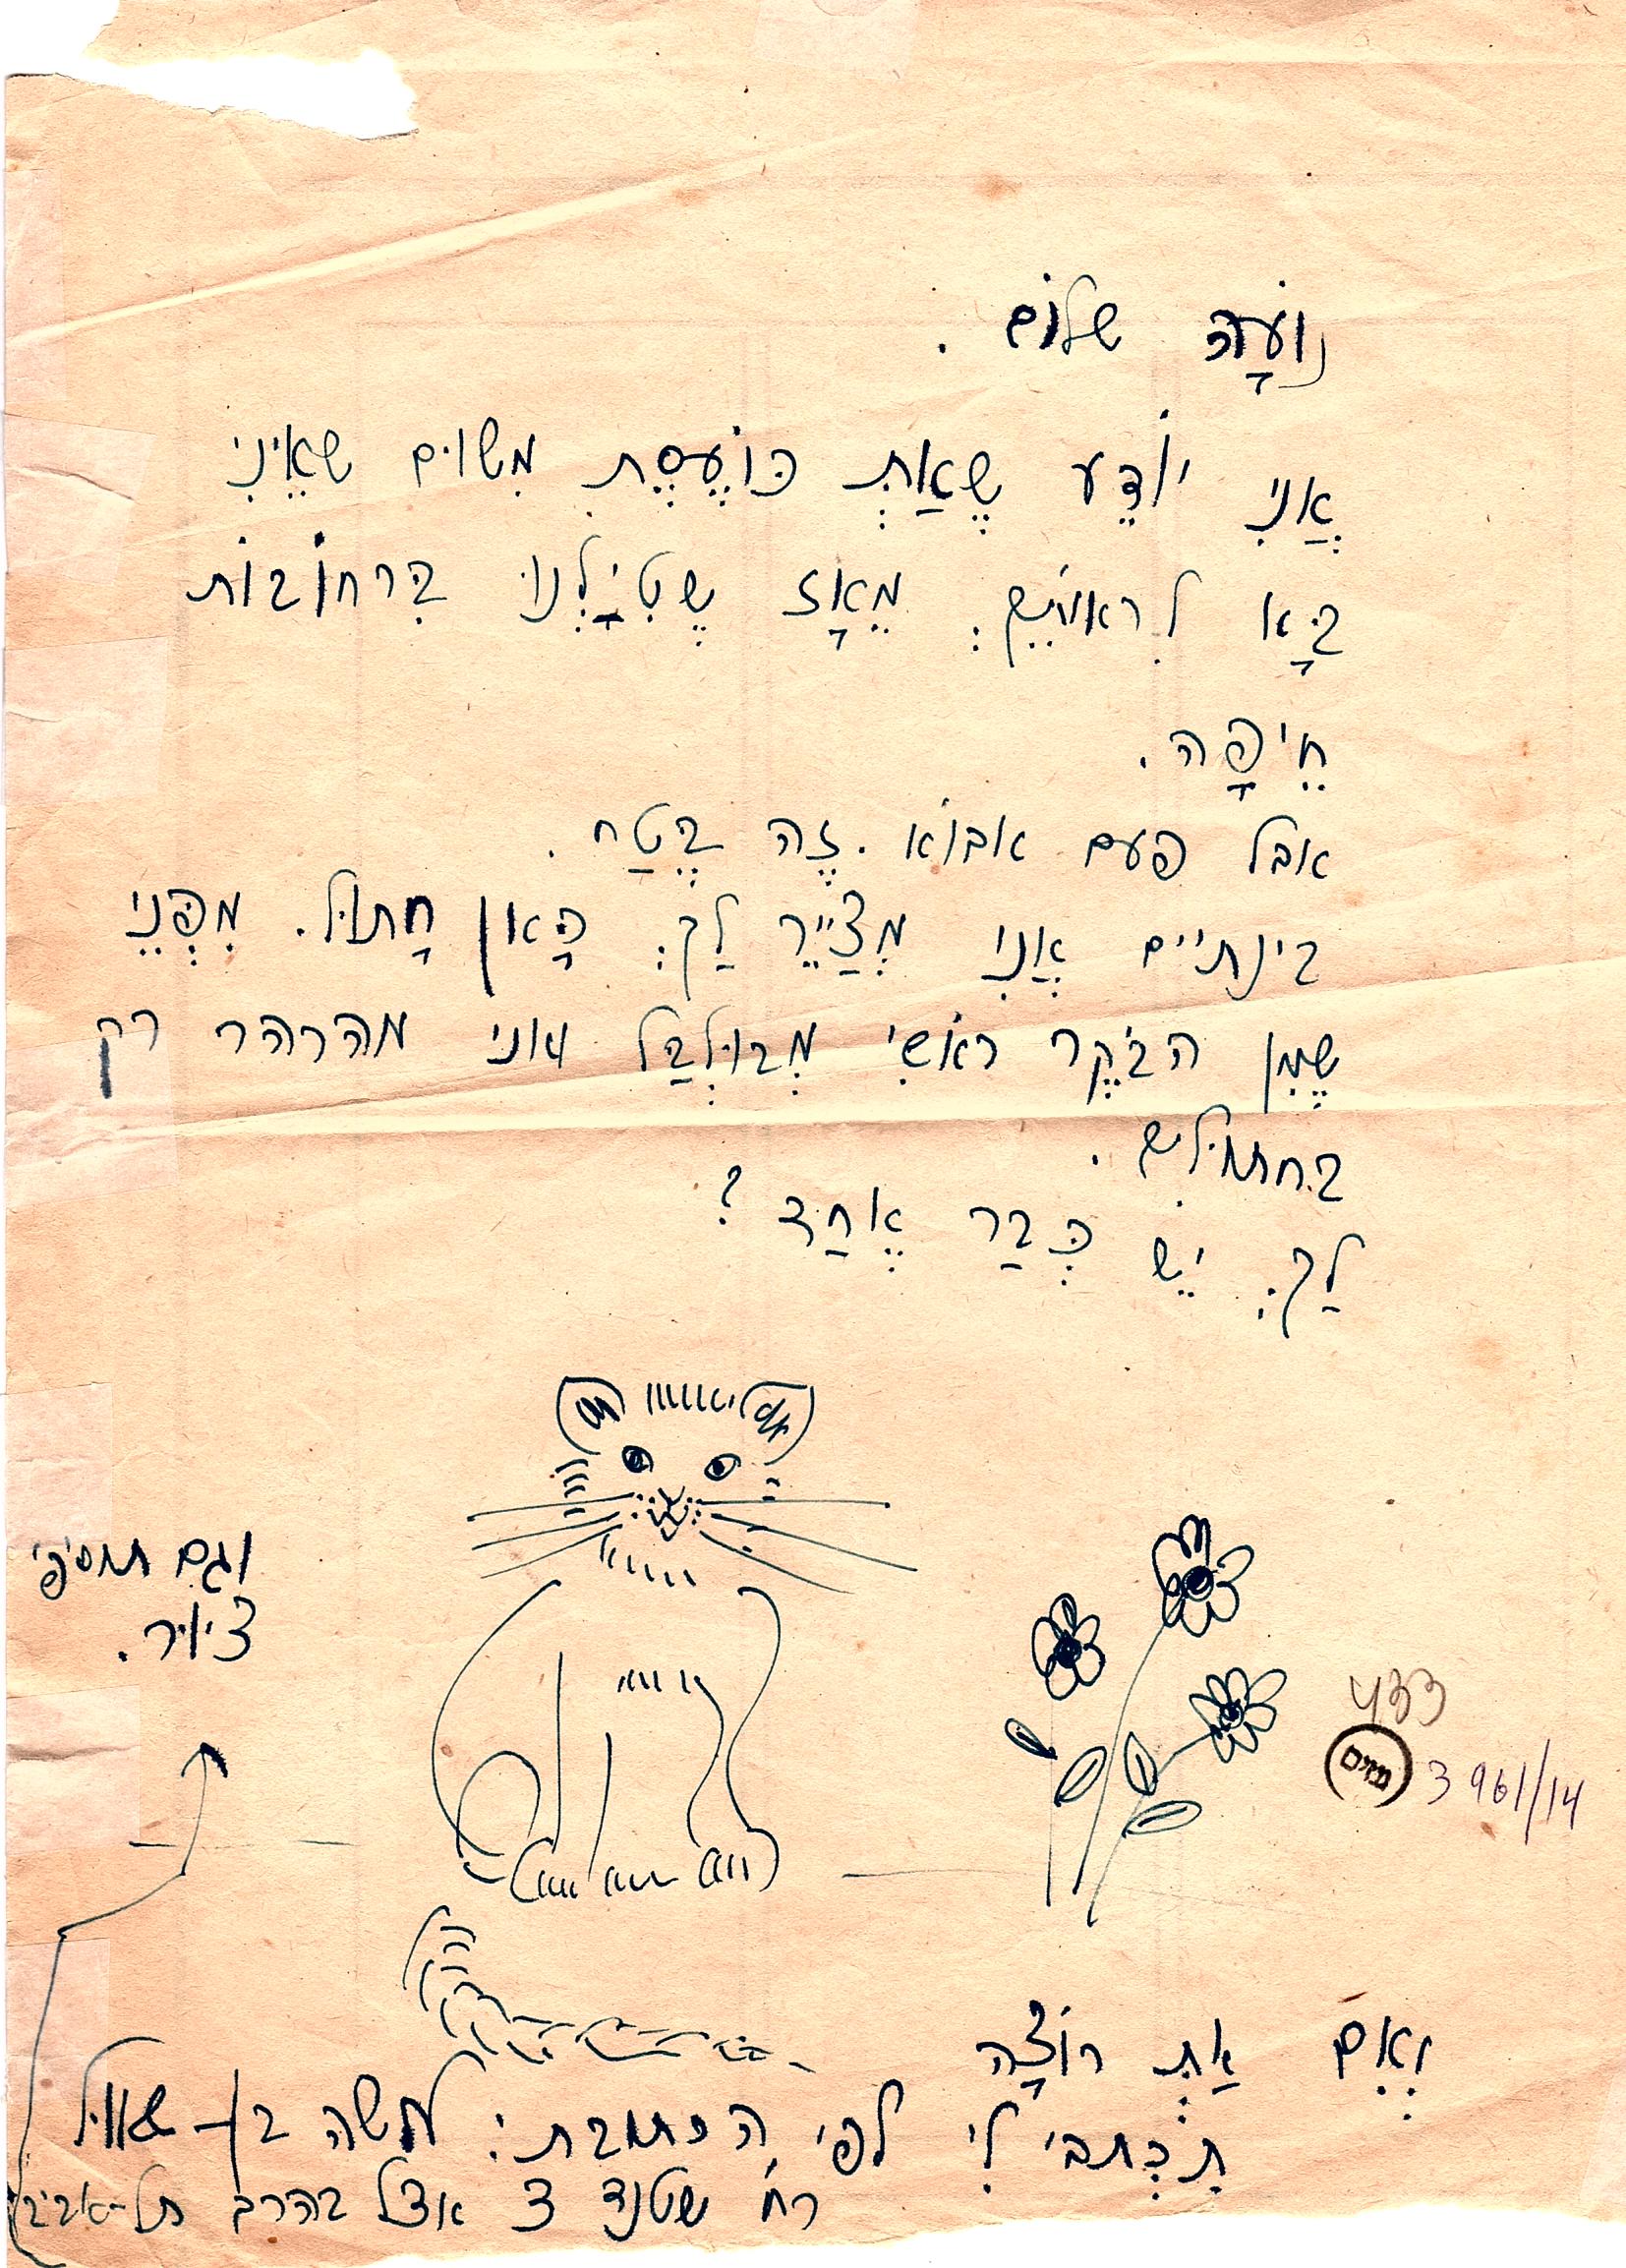 נוֹעָה שלוֹם .
אֲנִי יוֹדֵע שֶׁאַתְּ כּוֹעֶסֶת מִשוּם שאֵינִי
בָּא לִראוֹתֵךְ. מֵאָז שֶטִיַלְנוּ בִּרחוֹבוֹת
חֵיפָה.
אבל פעם אבוֹא . זֶה בֶּטַח .
בינתיים אֲנִי מְצַיֵיר לַךְ. הָאן חָתוּל. מִפְּנֵי
שֶמִן הבֹּקֶר ראשִי מְבוּלְבַּל ואני מהרהר רק
בחתוּלִים .
לַךְ. יֵש כְּבַר אֶחַד ?
וגם תוסיפי
ציור .
433
3 961/14
וְאִם אַתְּ רוֹצָה
תִכְּתְבִי לִי לפי הכתובת: משה בן-שאול
רח' שטנד 3 אצל בהרב תל-אביב